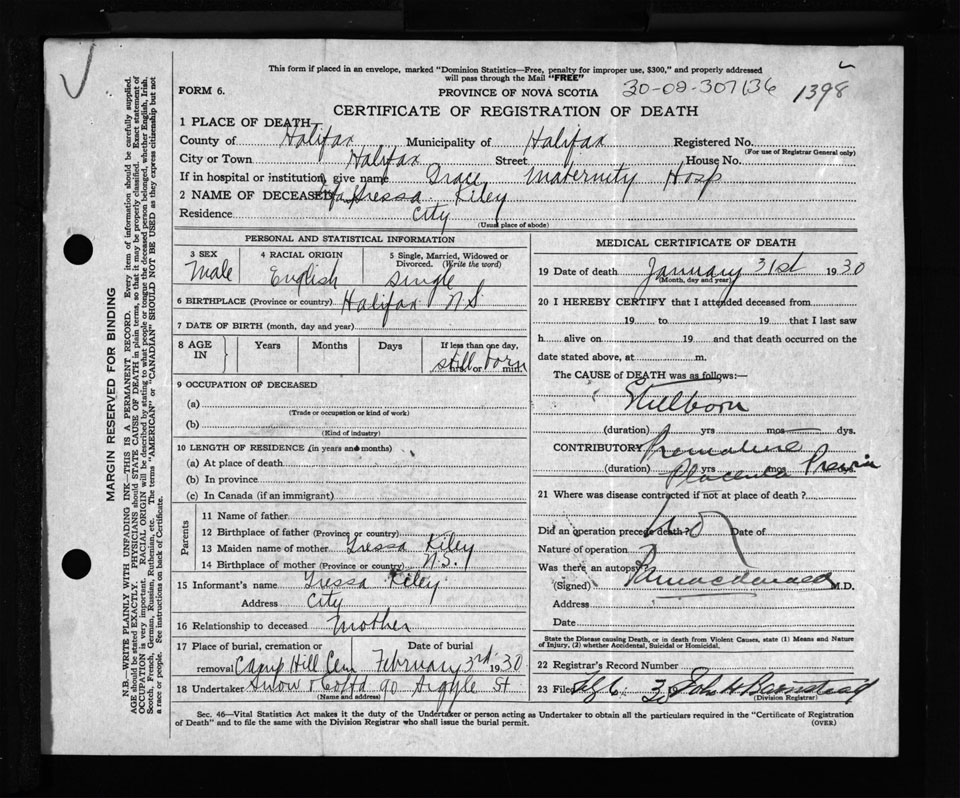 This form if placed in an envelope, marked "Dominion Statistics—Free, penalty for improper use, $300," and properly addressed
will pass through the Mail "FREE"
FORM 6.
PROVINCE OF NOVA SCOTIA
30-02-307136
1398
CERTIFICATE OF REGISTRATION OF DEATH
1 PLACE OF DEATH
County of Halifax Municipality of Halifax Registered No.
(For use of Registrar General only)
City or Town Halifax Street House No.
If in hospital or institution, give name Grace Maternity Hosp
2 NAME OF DECEASED Tressa Kiley
Residence City
(Usual place of abode)
PERSONAL AND STATISTICAL INFORMATION
3 SEX 4 RACIAL ORIGIN 5 Single, Married, Widowed or
Divorced. (Write the word)
Male English Single
6 BIRTHPLACE (Province or country) Halifax N.S
7 DATE OF BIRTH (month, day and year)
8 AGE IN Years Months Days If less than one day,
hrs. or min.
still born
9 OCCUPATION OF DECEASED
(a)
(Trade or occupation or kind of work)
(b)
(Kind of industry)
10 LENGTH OF RESIDENCE (in years and months)
(a) At place of death
(b) In province
(c) In Canada (if an immigrant)
Parents
11 Name of father
12 Birthplace of father (Province or country)
13 Maiden name of mother Tressa Kiley
14 Birthplace of mother (Province or country) N.S.
15 Informant's name Tressa Kiley
Address City
16 Relationship to deceased Mother
17 Place of burial, cremation or Date of burial
removal Camp Hill Cem February 3rd 1930
18 Undertaker Snow & Co Ltd 90 Argyle St
(Name and address)
MEDICAL CERTIFICATE OF DEATH
19 Date of death January 31st 1930
(Month, day and year)
20 I HEREBY CERTIFY that I attended deceased from
19 to 19 that I last saw
h alive on 19 and that death occurred on the
date stated above, at m.
The CAUSE of DEATH was as follows:—
Stillborn
(duration) yrs mos dys.
CONTRIBUTORY Premature
(duration) yrs mos dys.
Placenta Previa
21 Where was disease contracted if not at place of death ?
Did an operation precede death? Date of
No
Nature of operation
Was there an autopsy
(Signed) Macdonald M.D.
Address
Date
State the Disease causing Death, or in death from Violent Causes, state (1) Means and Nature
of Injury, (2) whether Accidental, Suicidal or Homicidal.
22 Registrar's Record Number
23 Filed
(Division Registrar)
Sec. 46—Vital Statistics Act makes it the duty of the Undertaker or person acting as Undertaker to obtain all the particulars required in the "Certificate of Registration
of Death" and to file the same with the Division Registrar who shall issue the burial permit. (OVER)
MARGIN RESERVED FOR BINDING
N.B.—WRITE PLAINLY WITH UNFADING INK—THIS IS A PERMANENT RECORD. Every item of information should be carefully supplied.
AGE should be stated EXACTLY. PHYSICIANS should STATE CAUSE OF DEATH in plain terms, so that it may be properly classified. Exact statement of
OCCUPATION is very important. RACIAL ORIGIN will be described by stating to what people or tongue the deceased person belonged, whether English, Irish,
Scotch, French, German, Russian, Ruthenian, etc. The terms "AMERICAN" or "CANADIAN" SHOULD NOT BE USED as they express citizenship but not
a race or people. See instructions on back of Certificate.